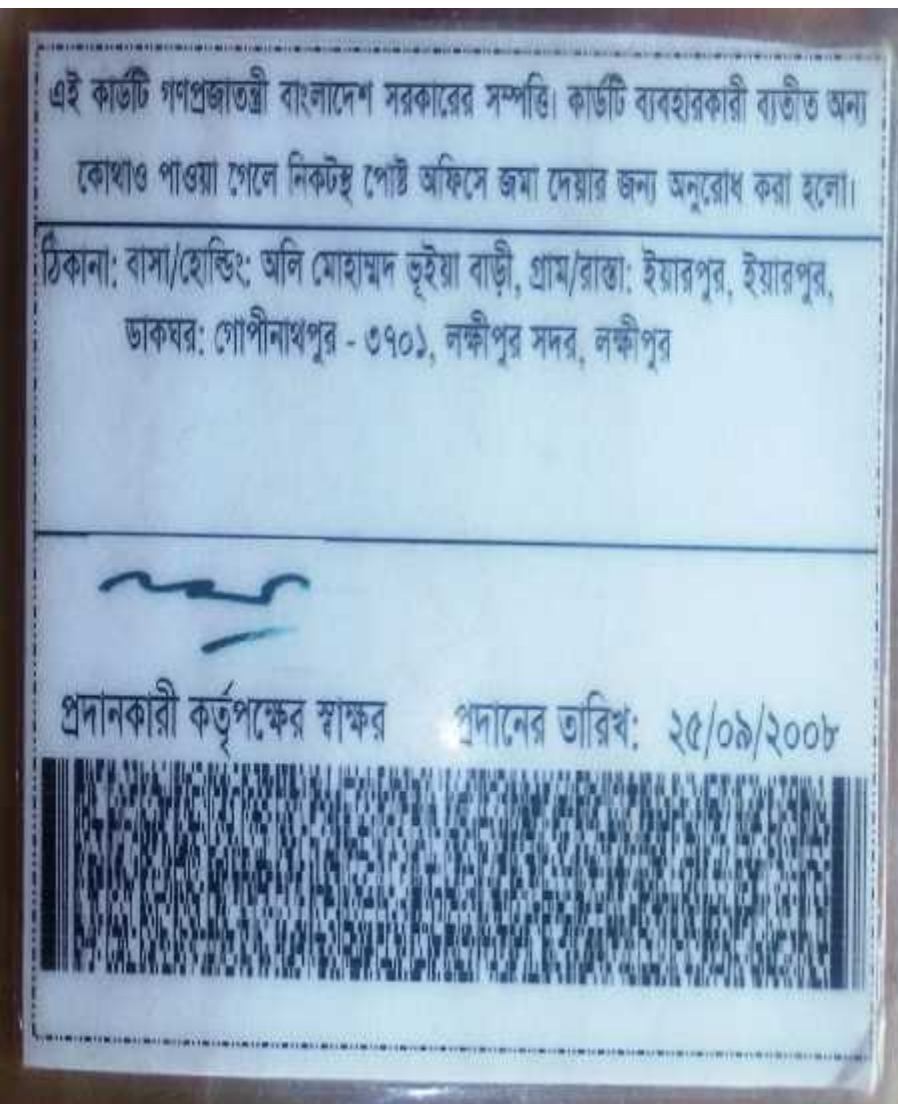 এই কার্ডটি গণপ্রজাতন্ত্রী বাংলাদেশ সরকারের সম্পত্তি। কার্ডটি ব্যবহারকারী ব্যতীত অন্য
কোথাও পাওয়া গেলে নিকটস্থ পোষ্ট অফিসে জমা দেয়ার জন্য অনুরোধ করা হলো।
ঠিকানা: বাসা/হোল্ডিং: অলি মোহাম্মদ ভূইয়া বাড়ী, গ্রাম/রাস্তা: ইয়ারপুর, ইয়ারপুর,
ডাকঘর: গোপীনাথপুর - ৩৭০১, লক্ষীপুর সদর, লক্ষীপুর
প্রদানকারী কর্তৃপক্ষের স্বাক্ষর প্রদানের তারিখ: ২৫/০৯/২০০৮